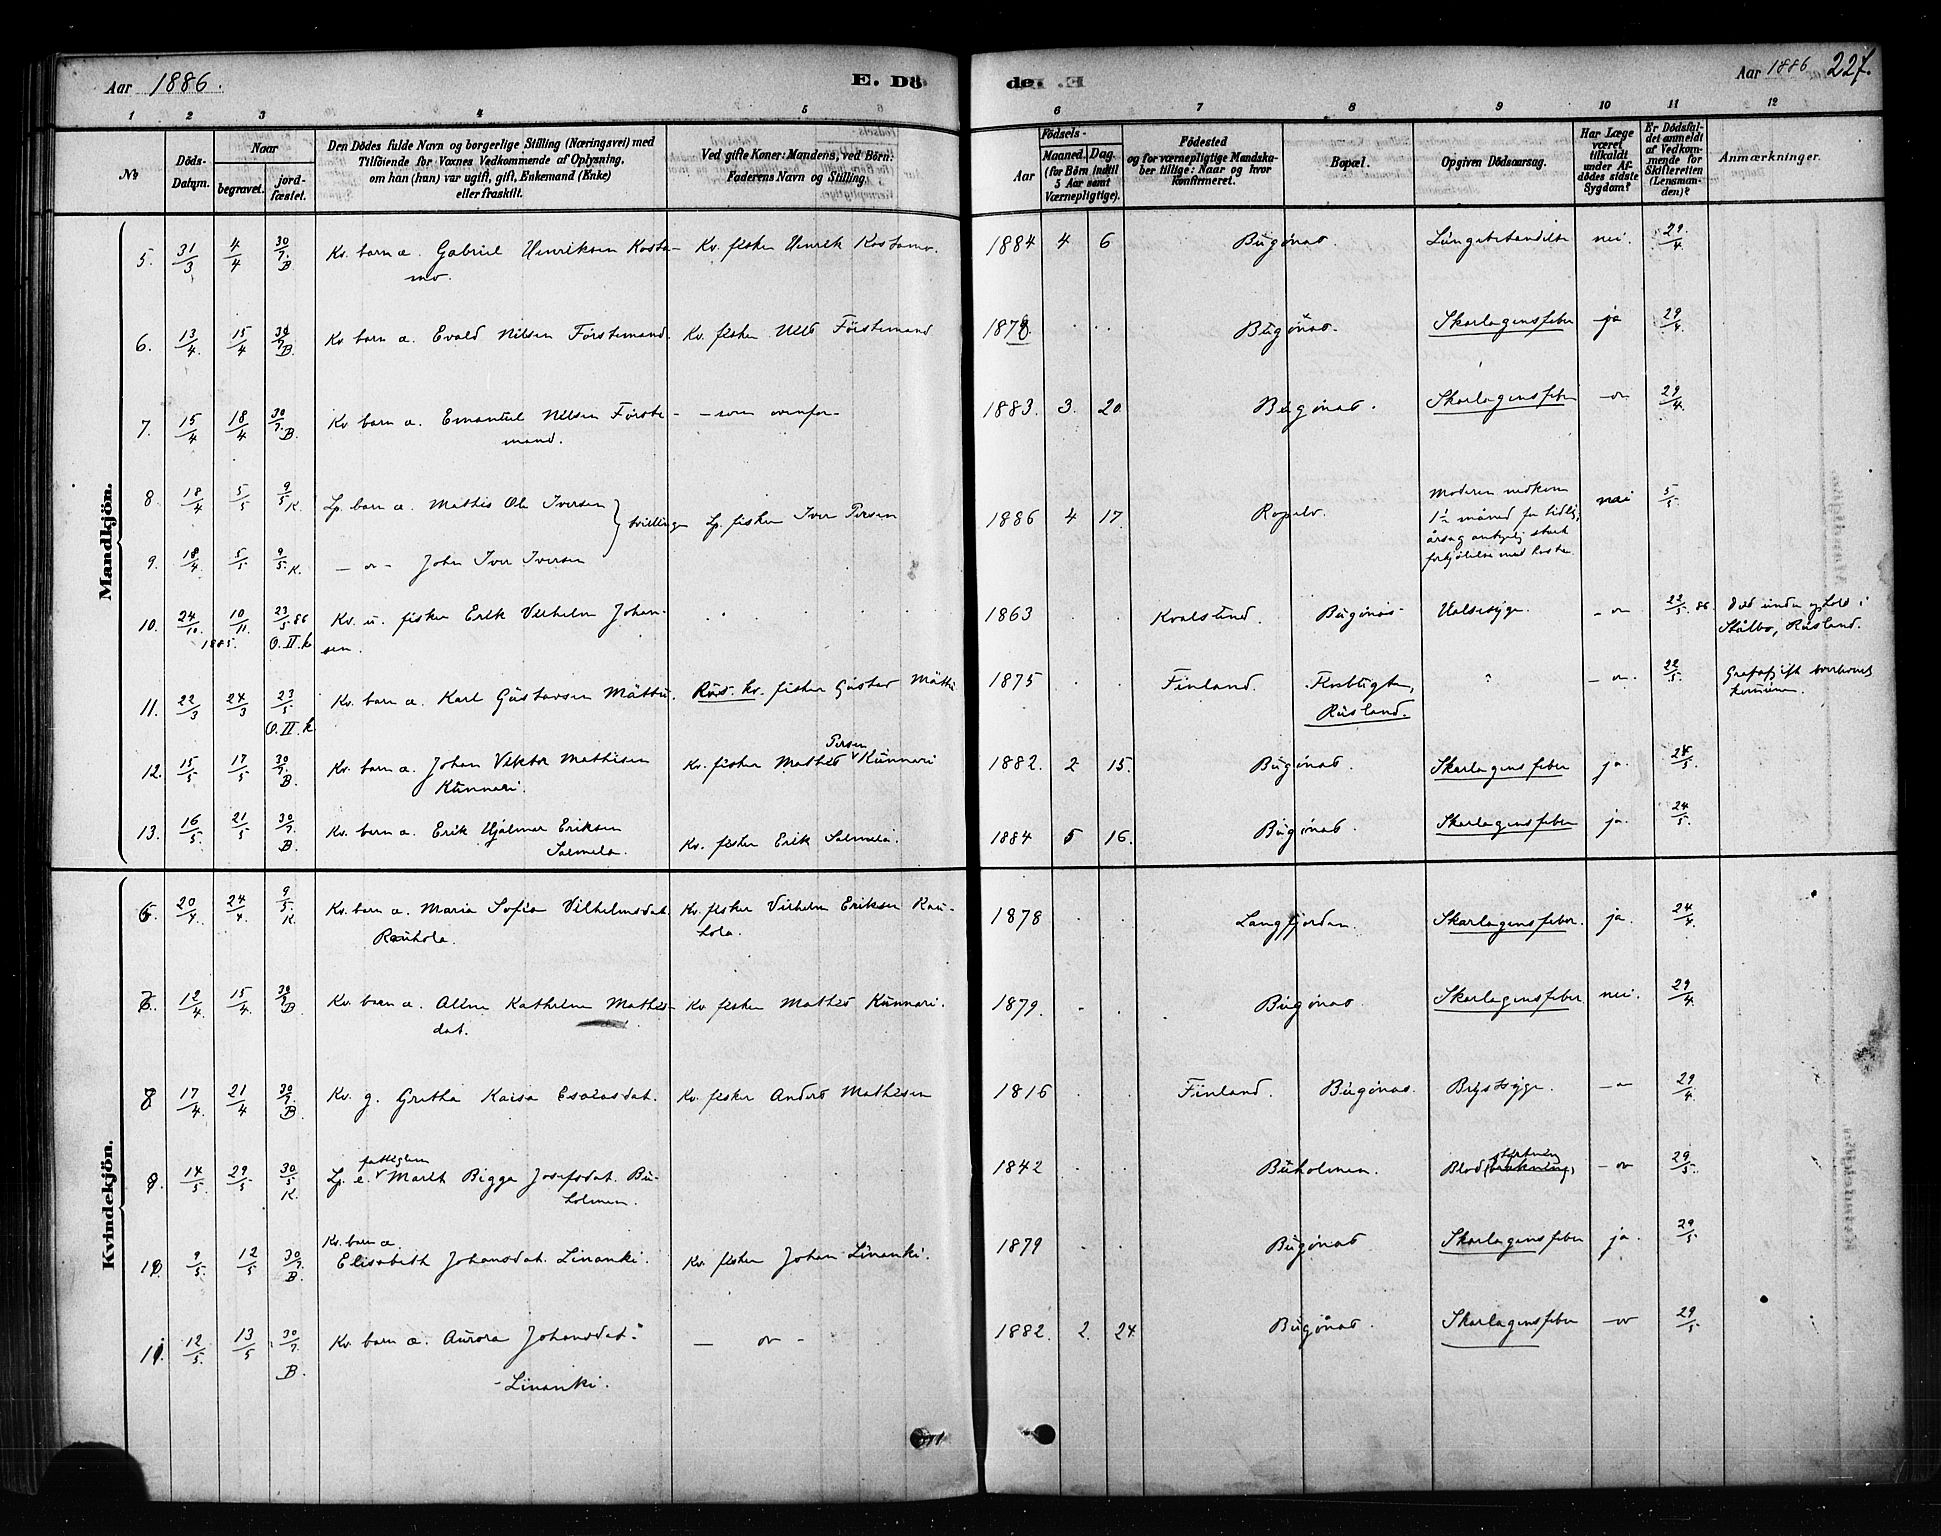 Aar 1886. E. Dö de. Aar 1886 227.
1 2 3 4 5 6 7 8 9 10 11 12
No
Döds-Datum.
Naar
begravet. jordfæstet.
Den Dödes fulde Navn og borgerlige Stilling (Næringsvei) med
Tilföiende for Voxnes Vedkommende af Oplysning,
om han (hun) var ugift, gift, Enkemand (Enke)
eller fraskilt.
Ved gifte Koner: Mandens, ved Börn:
Faderens Navn og Stilling.
Födsels-
Aar Maaned. Dag.
(for Börn indtil
5 Aar samt
Værnepligtige).
Födested
og for værnepligtige Mandskaber tillige: Naar og hvor
Konfirmeret.
Bopæl.
Opgiven Dödsaarsag.
Har Læge
været
tilkaldt
under Afdödes sidste
Sygdom?
Er Dödsfaldet anmeldt
af Vedkommende for
Skifteretten
(Lensmanden)?
Anmærkninger.
Mandkjön.
5. 31/3 4/4 30/7. B Kv. barn a. Gabriel Henriksen Kosta- Kv. fisker Henrik Kostamo. 1884 4 6 Bugönæs. Lungebetændelse nei. 29/4
mo.
6. 13/4. 15/4 30/7 B. Kv. barn a. Evald Nilsen Förstemand. Kv. fisker Nils Förstemand 1878 . . . Bugönæs. Skarlagensfeber ja 29/4
7. 15/4 18/4 30/7. B. Kv. barn a. Emanuel Nilsen Förste- - som ovenfor - 1883. 3. 20 Bugönæs. Skarlagensfeber - or 29/4.
mand.
8. 18/4 5/5 9/5 K Lp. barn a. Mathis Ole Iversen } tvillinger Lp. fisker Iver Persen 1886 4 17. Ropelv. Moderen nedkom nei 5/5.
9. 18/4 5/5 9/5 K. - or - John Iver Iversen
10. 24/10. 10/11. 1885. 23/5 86 O. II. k Kv. u. fisker Erik Vilhelm Johan- . . . 1863 . . Kvalsund. Bugönæs. Halsesyge. - or 22/5. 86. Död under ophold i
sen. Stålbo, Rusland.
11. 22/3 24/3 23/5 O. II. k Kv. barn a. Karl Gustavsen Mättu. Rus. kv. fisker Gustav Mättu 1875 . . Finland. Rusland. - or. 22/5.
12. 15/5 17/5 30/7. B. Kv. barn a. Johan Viktor Mathisen Kv. fisker Mathis Persen Kunnari 1882. 2 15. Bugönæs. Skarlagensfeber ja. 24/5.
Kunnari.
13. 16/5. 21/5 30/7. B. Kv. barn a. Erik Hjalmar Eriksen Kv. fisker Erik Salmela. 1884 5 16. Bugönæs. Skarlagensfeber ja. 24/5.
Salmela.
Kvindekjön.
6 20/4. 24/4. 9/5. K Kv. barn a. Maria Sofia Vilhelmsdat. Kv. fisker Vilhelm Eriksen Rau- 1878 . . Langfjorden. Skarlagensfeber. ja. 24/4.
Rauhola. hola.
7. 12/4. 15/4. 30/7 B. Kv. barn a. Alma Kathrina Mathis- Kv. fisker Mathis Kunnari. 1879. . . Bugönæs Skarlagensfeber nei. 29/4
dat.
8 17/4. 21/4 30/7. B. Kv. g. Gretha Kaisa Esaiasdat. Kv. fisker Anders Mathisen 1816 . . Finland. Bugönæs. Brystsyge. - or 29/4
9 14/5. 29/5 30/5 K. Lp. e. fattiglem Marit Bigga Josefsdat. Bu- 1842 . . Buholmen. Blodstyrtning - or 29/5.
holmen.
Kv. barn a
10. 9/5. 12/5 30/7. B. Elisabeth Johansdat. Linanki. Kv. fisker Johan Linanki. 1879 . . Bugönæs Skarlagensfeber ja. 29/5
11. 12/5. 13/5 30/7. B. Kv. barn a. Aurora Johansdat. - or - 1882. 2. 24 Bugönæs. Skarlagensfeber - or 29/5.
- Linanki.